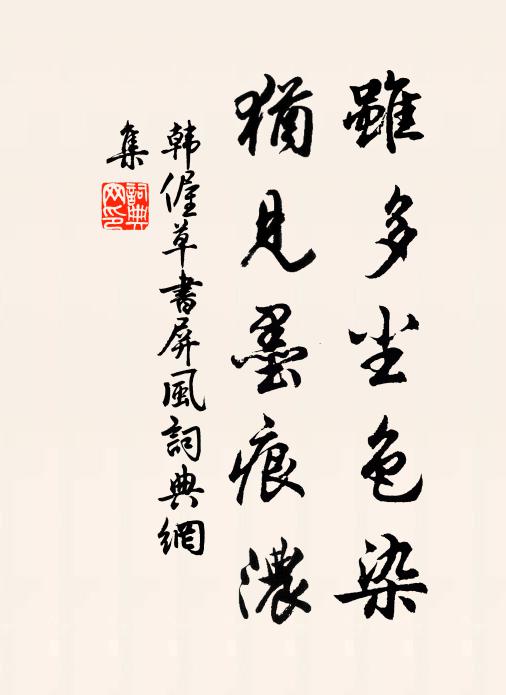 雖多尘色染
猶見墨痕濃
韩偓草書屏風詞典網
集
詞典
网印